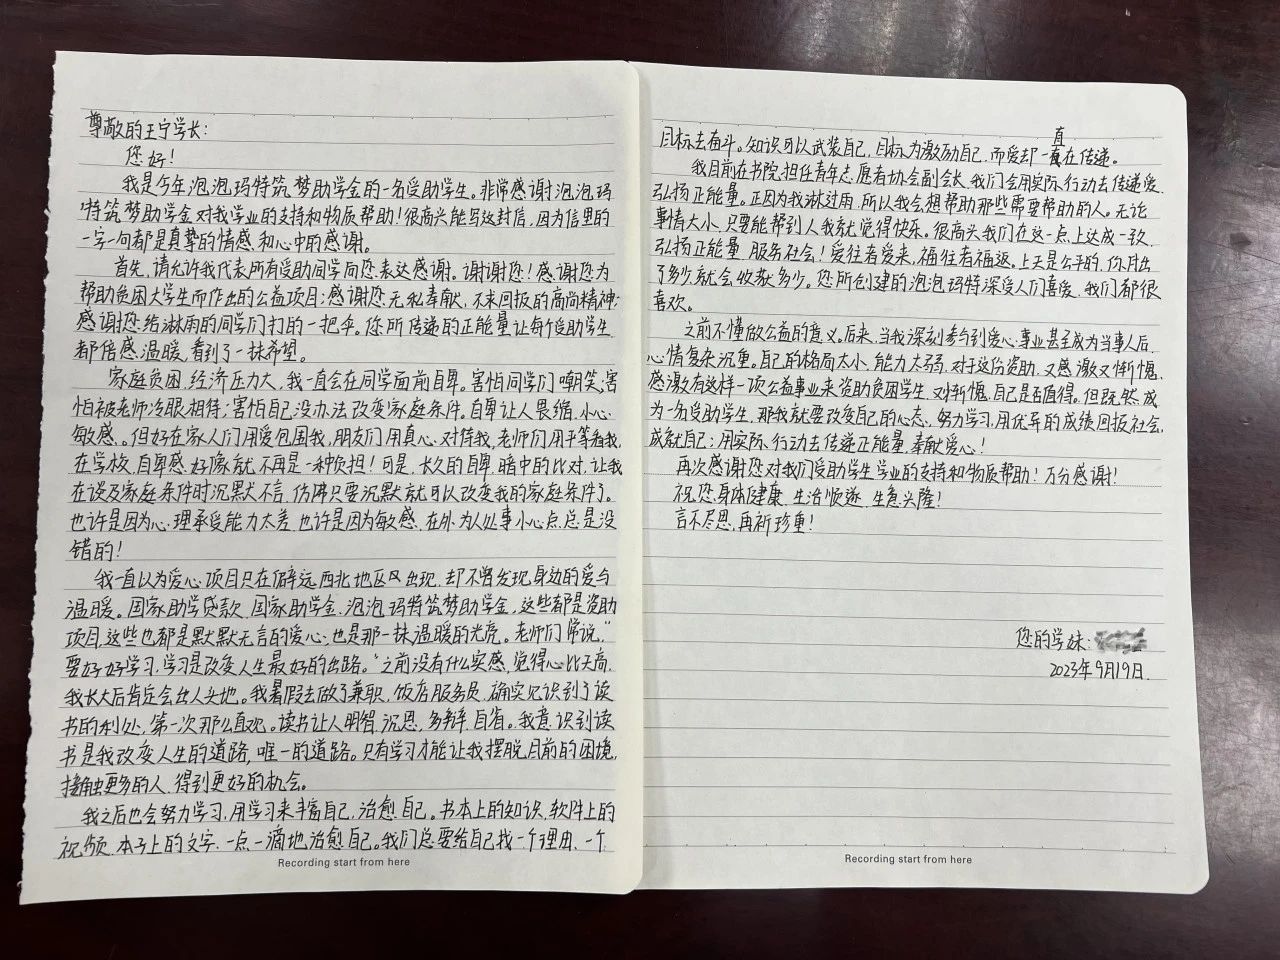 尊敬的王宁学长：
您好！
我是今年泡泡玛特筑梦助学金的一名受助学生。非常感谢泡泡玛
特筑梦助学金对我学业的支持和物质帮助！很高兴能写这封信，因为信里的
一字一句都是真挚的情感和心中的感谢。
首先，请允许我代表所有受助同学向您表达感谢。谢谢您！感谢您为
帮助贫困大学生而作出的公益项目；感谢您无私奉献，不求回报的高尚精神；
感谢您给淋雨的同学们打的一把伞。您所传递的正能量让每个受助学生
都倍感温暖，看到了一抹希望。
家庭贫困，经济压力大，我一直会在同学面前自卑。害怕同学们嘲笑；害
怕被老师冷眼相待；害怕自己没办法改变家庭条件。自卑让人畏缩、小心、
敏感。但好在家人们用爱包围我，朋友们用真心对待我，老师们用平等看我，
在学校，自卑感好像就不再是一种负担！可是，长久的自卑，暗中的比对，让我
在谈及家庭条件时沉默不言，仿佛只要沉默就可以改变我的家庭条件了。
也许是因为心理承受能力太差，也许是因为敏感，在外为人处事小心点总是没
错的！
我一直以为爱心项目只在偏远西北地区出现，却不曾发现身边的爱与
温暖。国家助学贷款，国家助学金，泡泡玛特筑梦助学金，这些都是资助
项目，这些也都是默默无言的爱心，也是那一抹温暖的光亮。老师们常说，“
要好好学习，学习是改变人生最好的出路。”之前没有什么实感，觉得心比天高，
我长大后肯定会出人头地。我暑假去做了兼职，饭店服务员，确实见识到了读
书的利处，第一次那么直观。读书让人明智，沉思，多辩，自省。我意识到读
书是我改变人生的道路，唯一的道路。只有学习才能让我摆脱目前的困境，
接触更多的人，得到更好的机会。
我之后也会努力学习，用学习来丰富自己，治愈自己。书本上的知识，软件上的
视频，本子上的文字，一点一滴地治愈自己。我们总要给自己找一个理由，一个
Recording start from here
目标去奋斗。知识可以武装自己，目标为激励自己，而爱却一直在传递。
我目前在书院担任青年志愿者协会副会长，我们会用实际行动去传递爱，
弘扬正能量。正因为我淋过雨，所以我会想帮助那些需要帮助的人。无论
事情大小，只要能帮到人我就觉得快乐。很高兴我们在这一点上达成一致，
弘扬正能量，服务社会！爱往者爱来，福往者福返。上天是公平的，你付出
了多少，就会收获多少。您所创建的泡泡玛特深受人们喜爱，我们都很
喜欢。
之前不懂做公益的意义。后来，当我深刻参与到爱心事业甚至成为当事人后，
心情复杂沉重。自己的格局太小，能力太弱，对于这份资助，又感激又惭愧，
感激有这样一项公益事业来资助贫困学生，又惭愧，自己是否值得。但既然成
为一名受助学生，那我就要改变自己的心态，努力学习，用优异的成绩回报社会，
成就自己；用实际行动去传递正能量，奉献爱心！
再次感谢您对我们受助学生学业的支持和物质帮助！万分感谢！
祝您身体健康，生活顺遂，生意兴隆！
言不尽思，再祈珍重！
您的学妹：
2023年9月19日.
Recording start from here